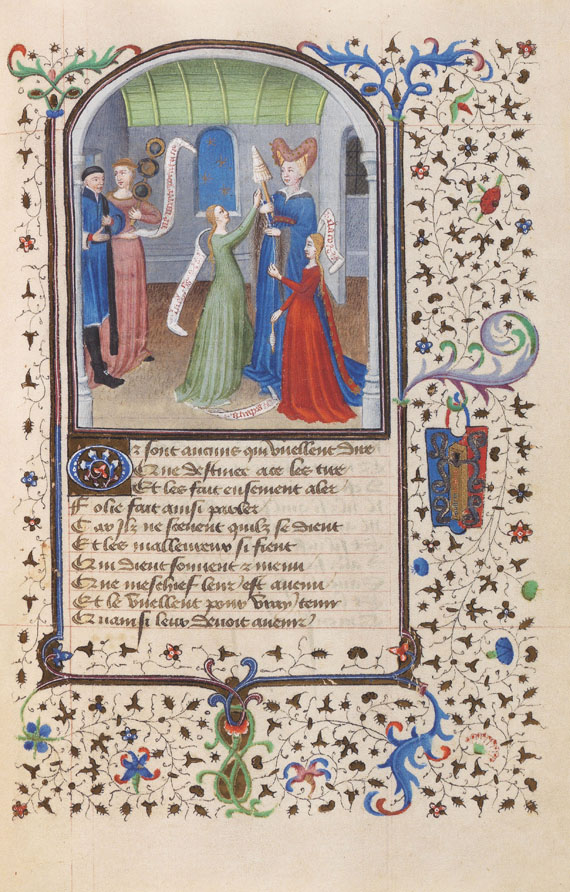 Or sont aucuns qui vuellent dire
Que destinee ace les tire
Et les fait ensement aler
Folie fait ainsi parler
Car Ilz ne scevent quilz se dient
Et les malleureux si fient
Qui dient souvent z menu
Que meschief leur est avenu
Et le vuellent pour vray tenir
Quainsi leur devoit avenir